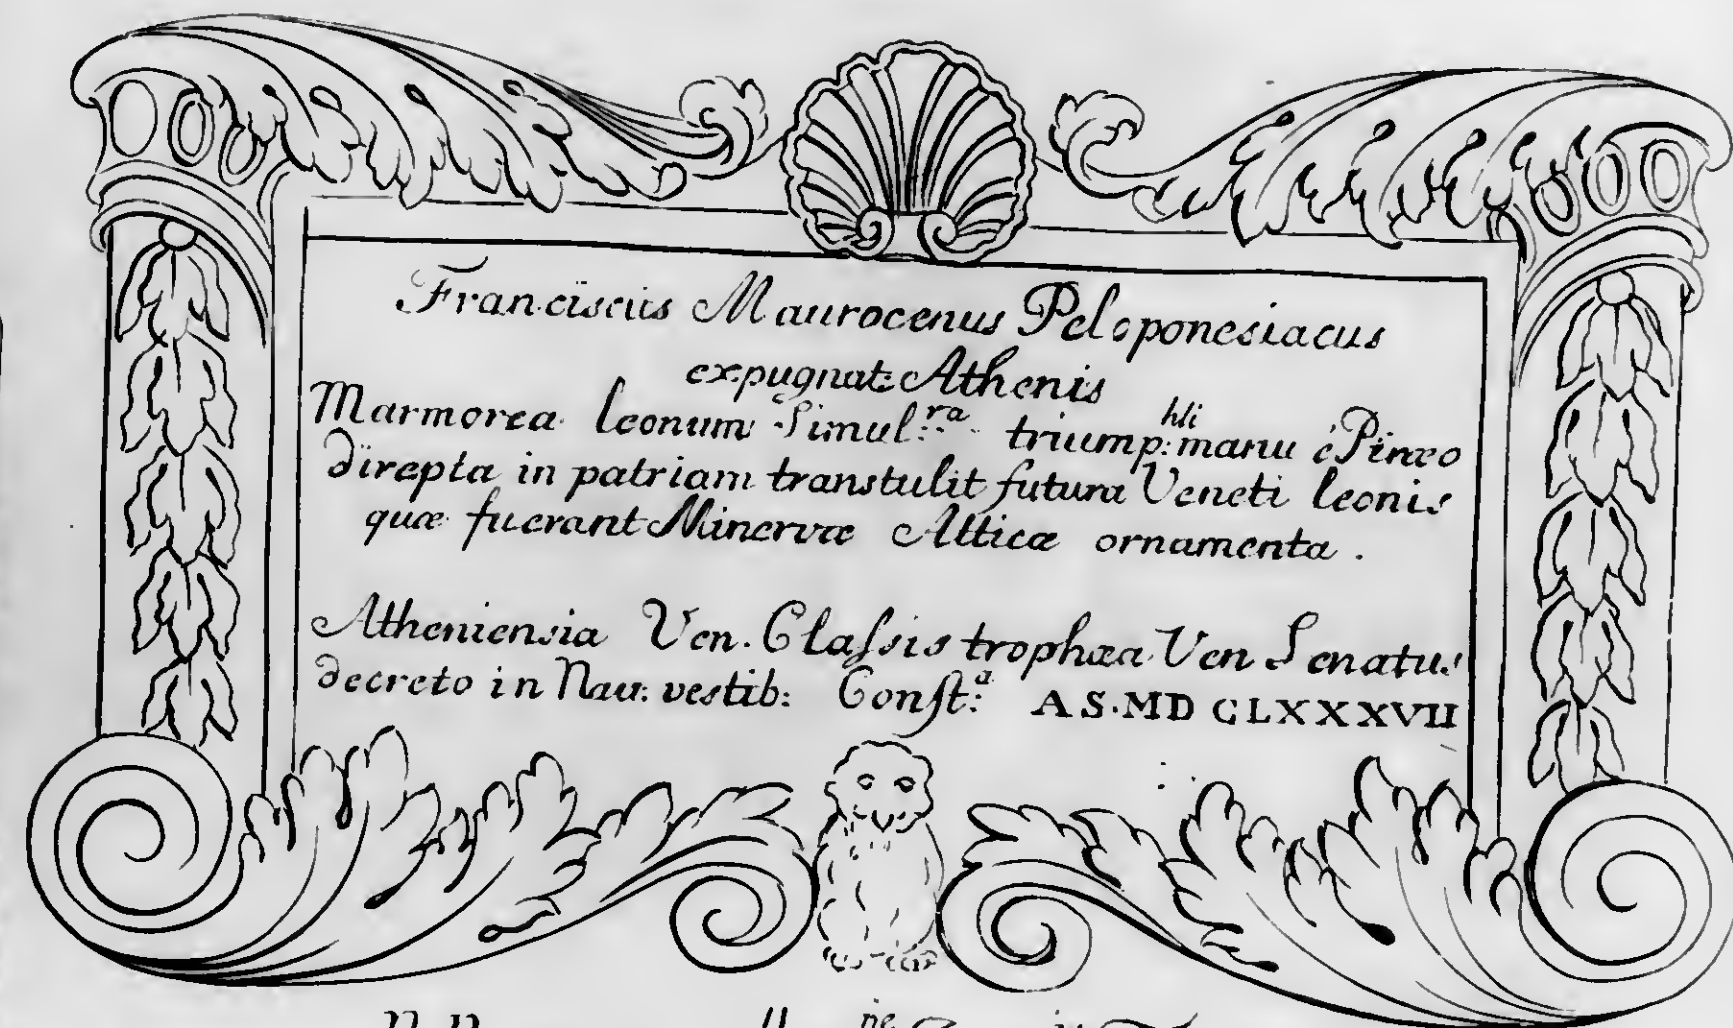 Franciscus Maurocenus Peloponesiacus
expugnat: Athenis
Marmorea leonum Simul:ra triump:hli manu é Piræo
direpta in patriam transtulit futura Veneti leonis
quæ fuerant Minervæ Atticæ ornamenta.
Atheniensia Ven. Claſsis trophæa Ven Senatus
decreto in Nav: vestib: Conſt:a A S. MD CLXXXVII